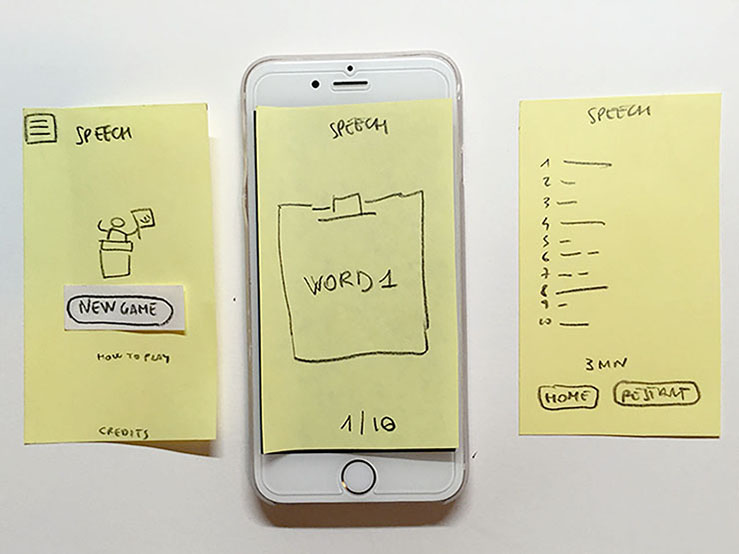 SPEECH
NEW GAME
HOW TO PLAY
CREDITS
SPEECH
WORD 1
1/10
SPEECH
1
2
3
4
5
6
7
8
9
10
3 MN
HOME
RESTART